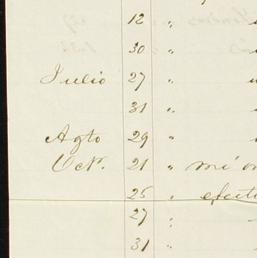 12 "
30 "
Julio 27 "
31 "
Agto 29 "
Oct. 21 " mi
25 " efect
27 "
31 "